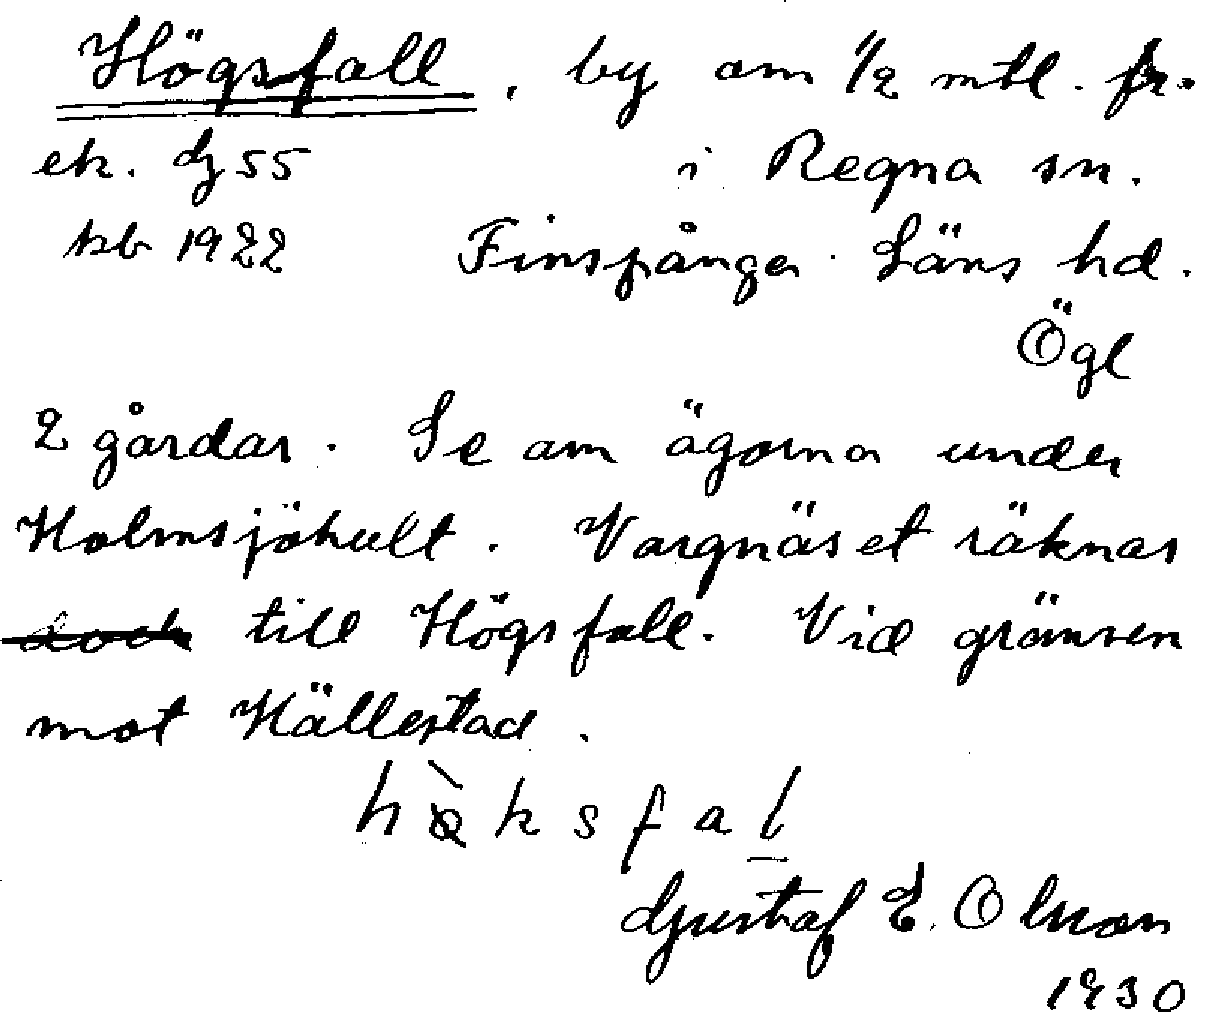 Högsfall, by om 1/2 mtl. fr.
ek. dj 55 i Regna sn.
kb 1922 Finspånga Läns hd.
Ögl
2 gårdar. Se om ägorna under
Holmsjöhult. Vargnäset räknas
doch till Högsfall. Vid gränsen
mot Hällestad.
hòksfal
Gustaf E. Olson
1930